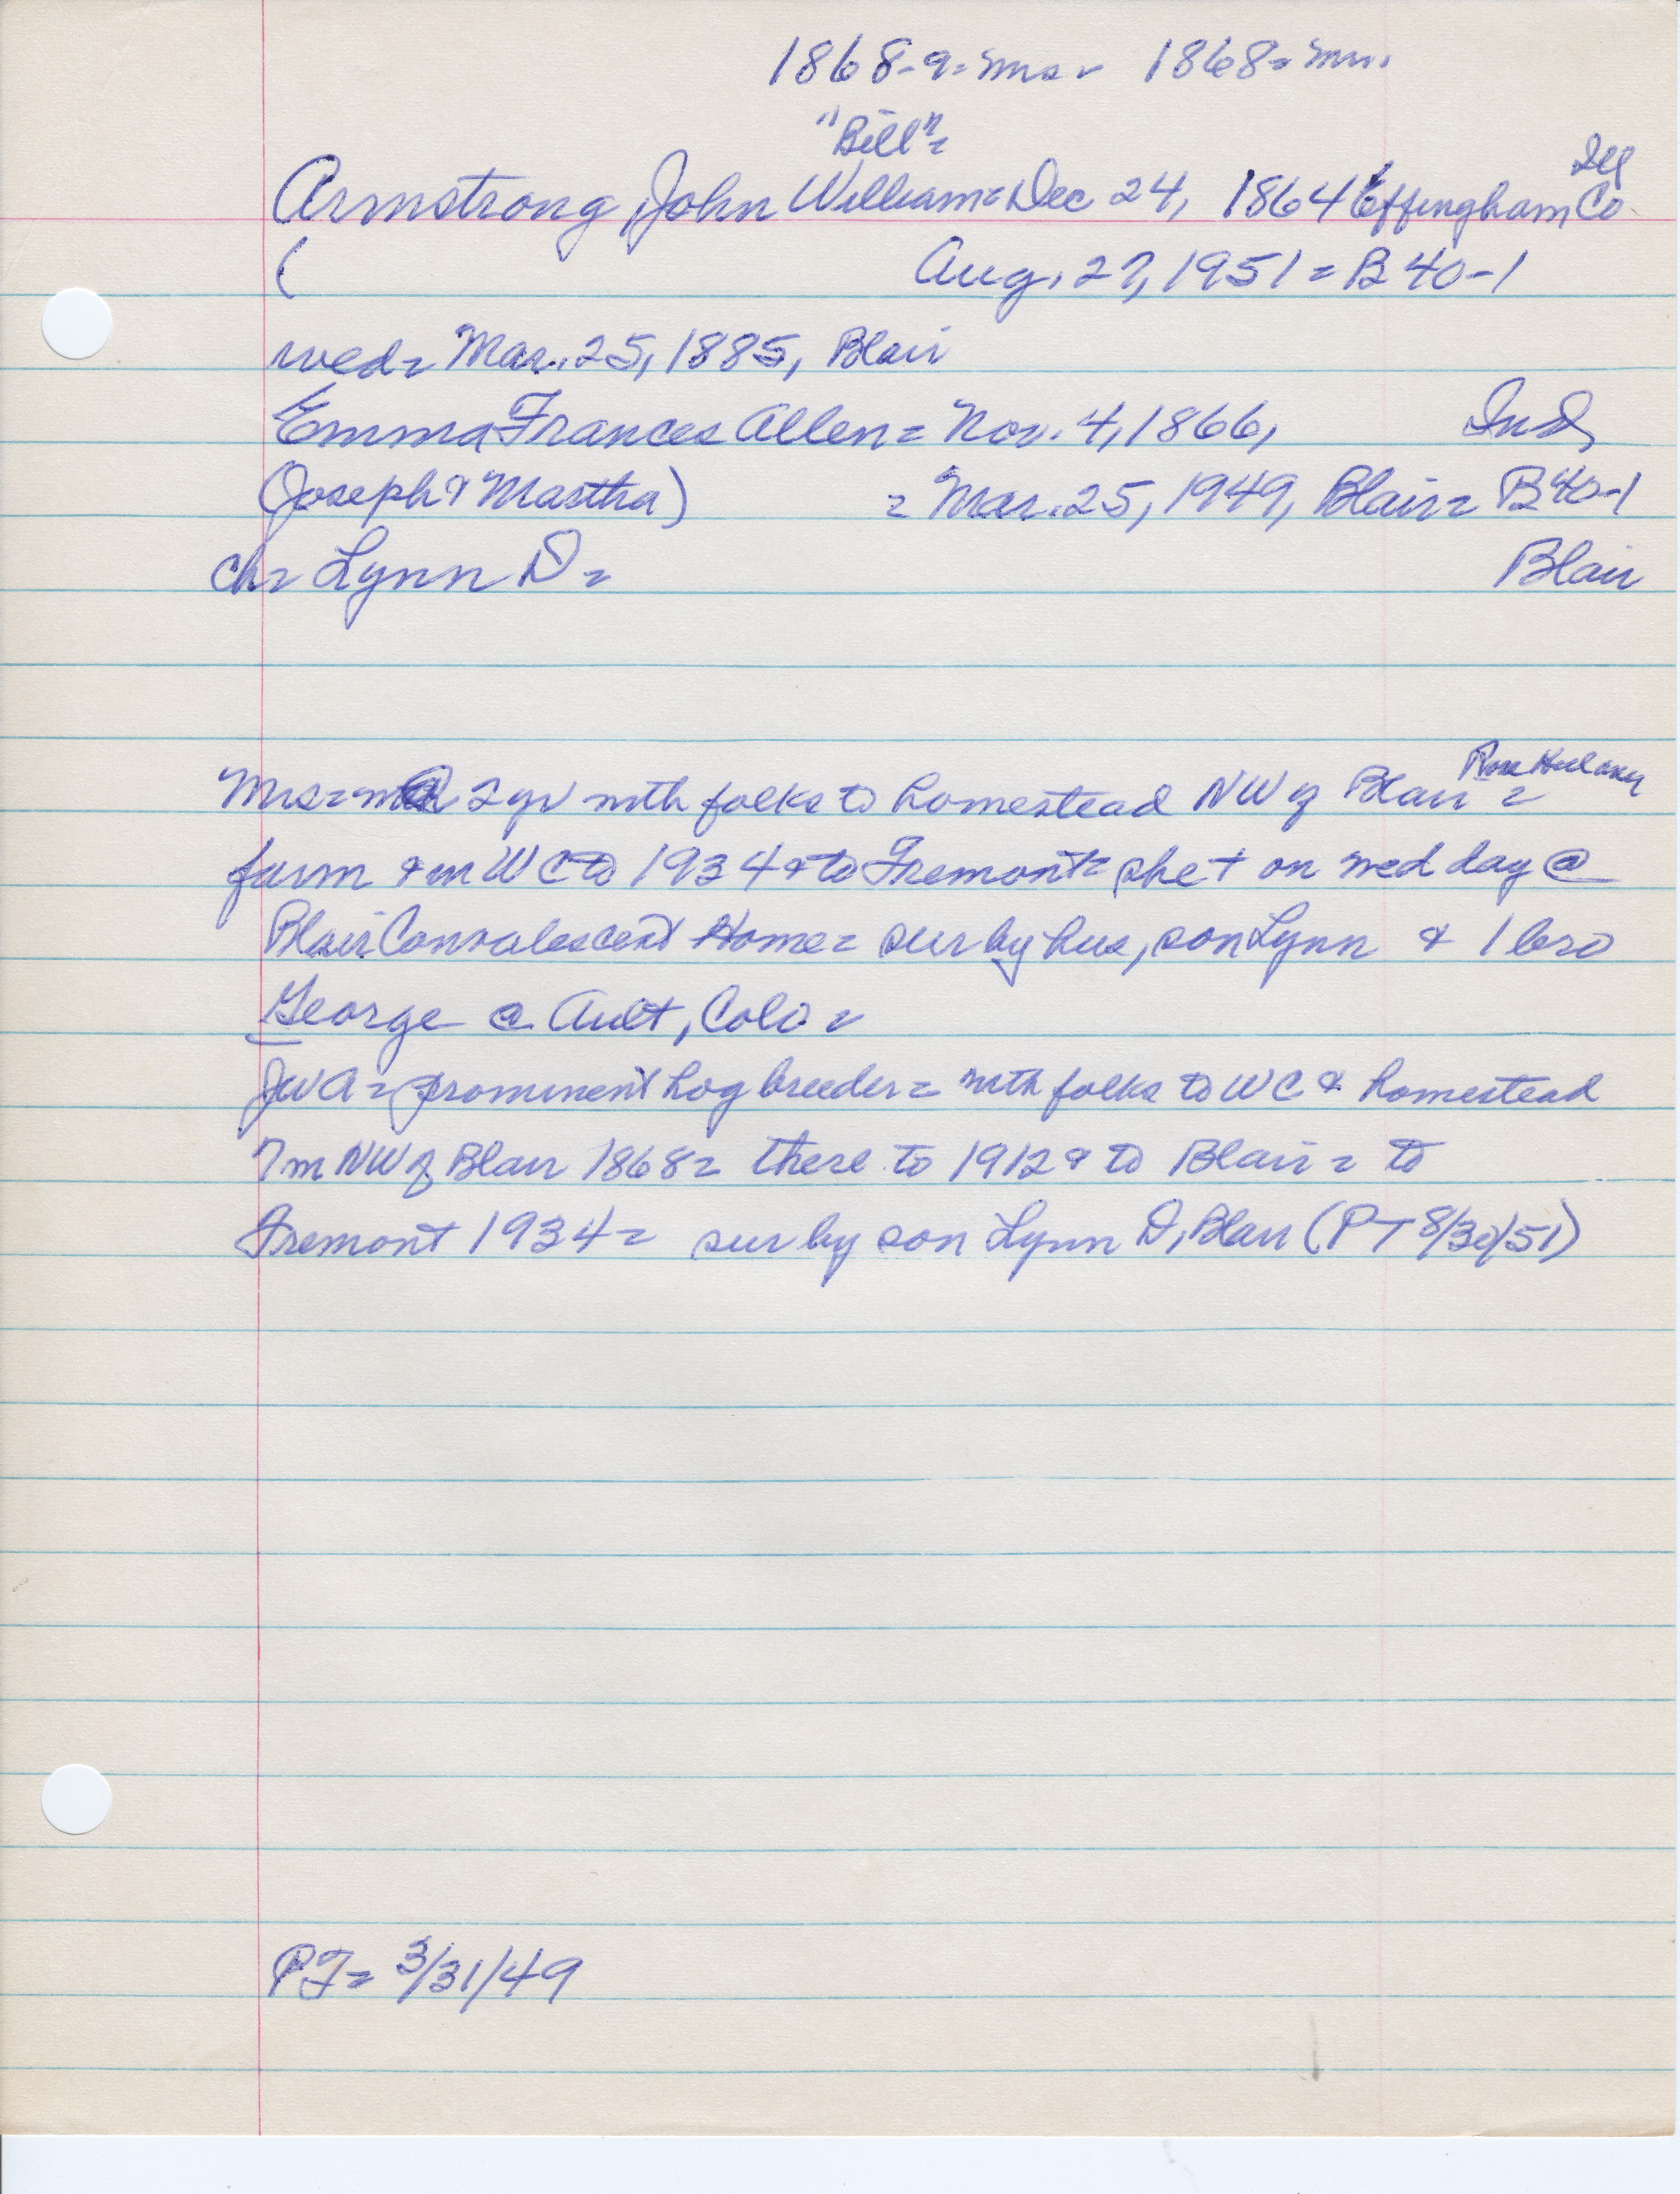 1868-9= mrs= 1868= mr.
"Bill"=
Ill
Armstrong, John William= Dec 24, 1864 Effingham Co
( Aug. 27, 1951 = B 40-1
wed= Mar. 25, 1885, Blair
Emma Frances Allen= Nov. 4, 1866, Ind
(Joseph & Mastha) = Mar. 25, 1949, Blair= B40-1
ch= Lynn D = Blair
Rose
Mrs= @ 2 yr with folks to homestead NW of Blair =
farm & in WC to 1934 & to Fremont= she + on wed day @
Blair Convalescent Home= sur by hus, son Lynn & 1 bro
George @ Ault, Colo =
JWA = prominent hog breeder = with folks to WC & homestead
7m NW of Blair 1868= there to 1912 & to Blair = to
Fremont 1934= sur by son Lynn D, Blair (PT 8/30/51)
PT= 3/31/49